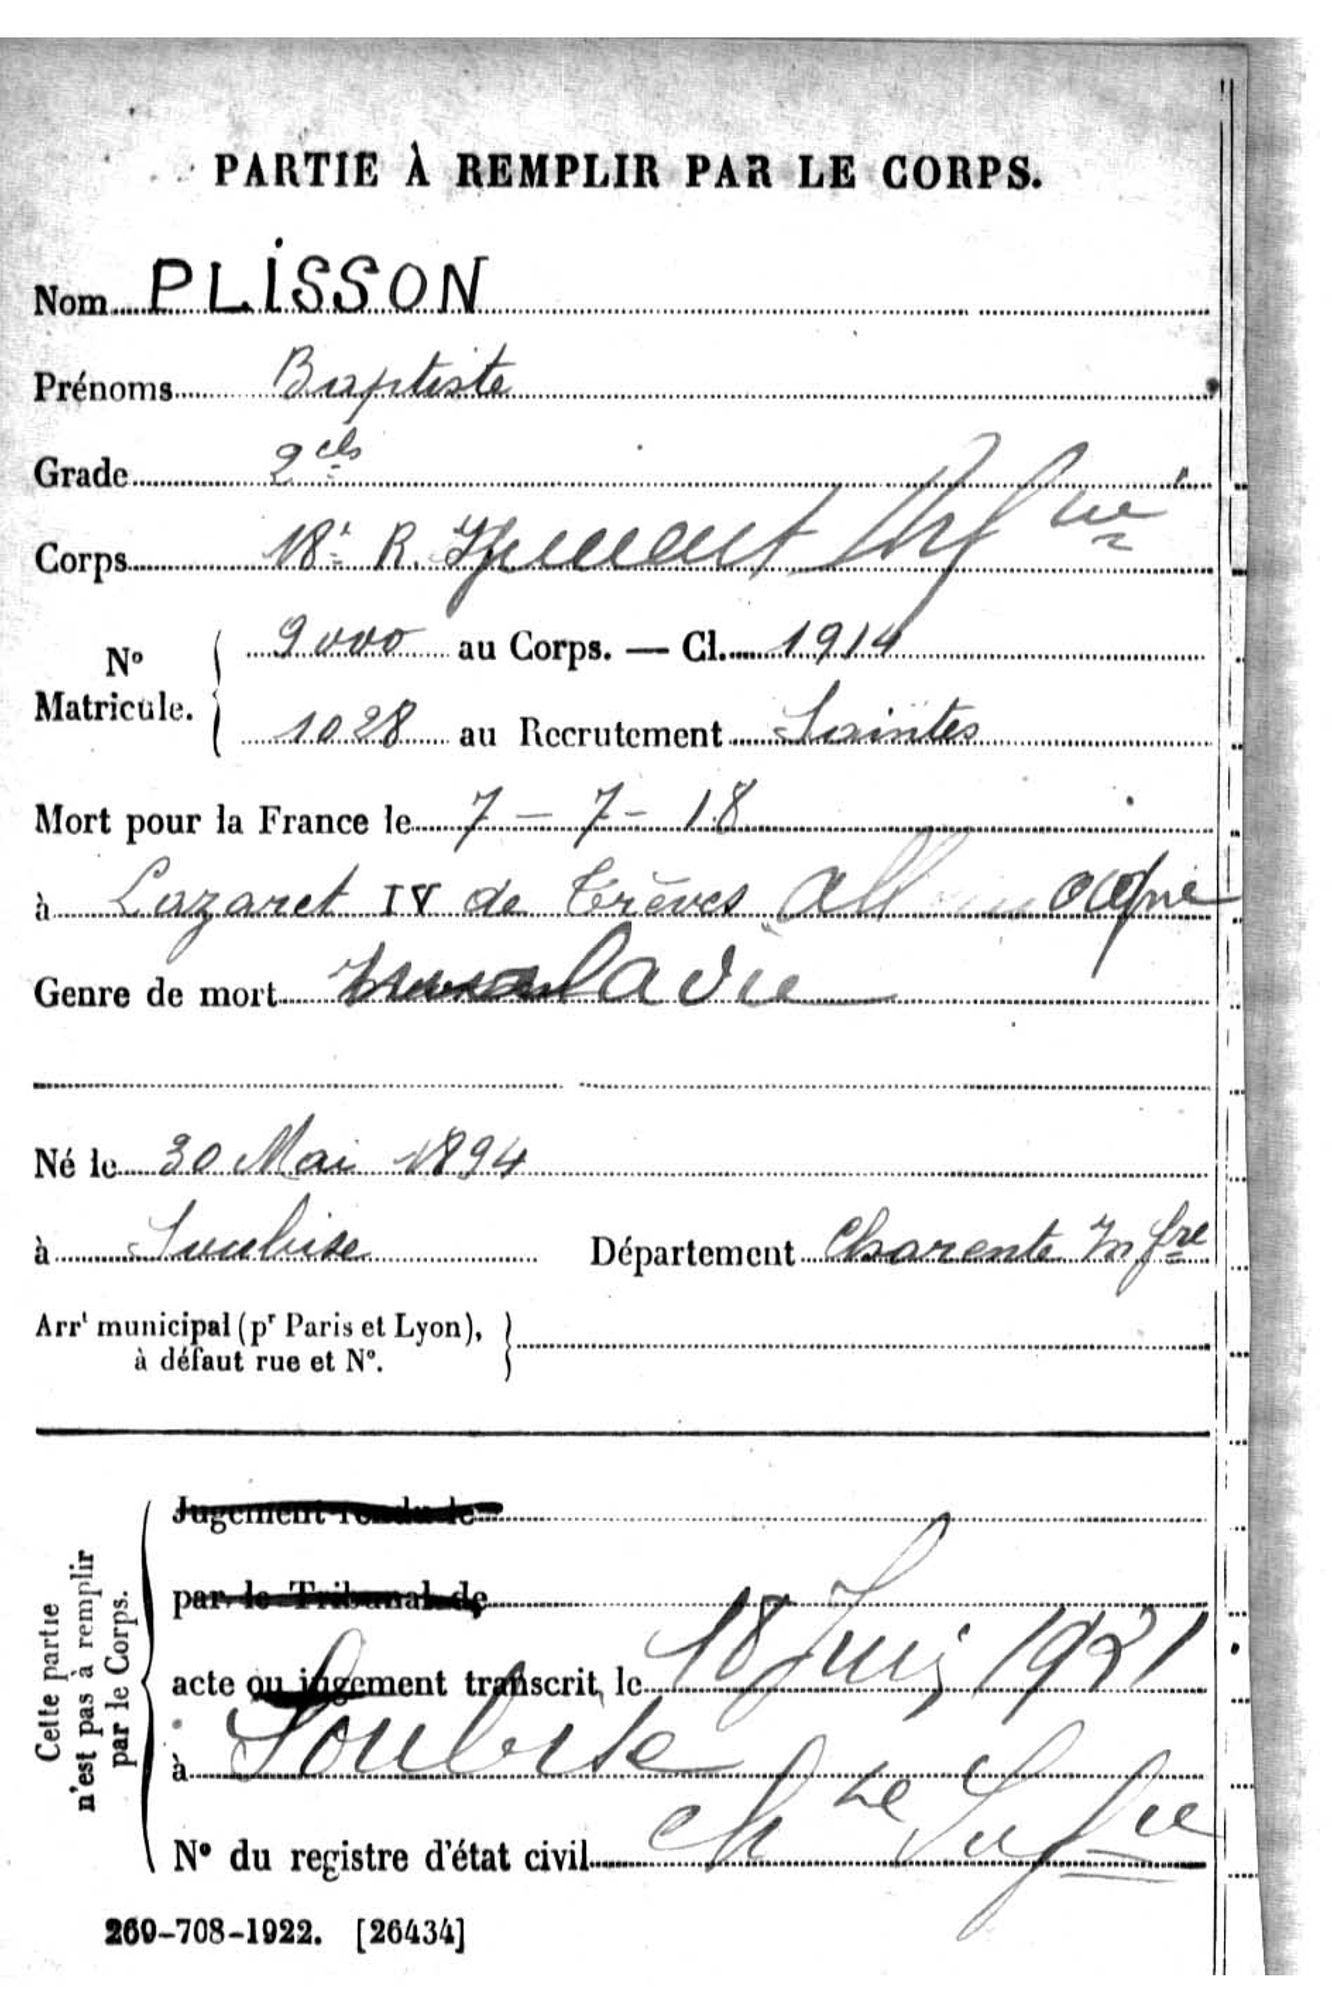 PARTIE À REMPLIR PAR LE CORPS.
Nom PLISSON
Prénoms Baptiste
Grade 2 cls
Corps 18e R. Infrie
No Matricule. 9000 au Corps. — Cl. 1914
1028 au Recrutement Saintes
Mort pour la France le 7-7-18
à Lazaret IV de Trèves Allemagne
Genre de mort maladie
Né le 30 Mai 1894
à Soubise Département Charente Infre
Arrt municipal (pr Paris et Lyon),
à défaut rue et N°.
Cette partie
n'est pas à remplir
par le Corps.
Jugement rendu le
par le Tribunal de
acte ou jugement transcrit le 18 Juin 1921
à Soubise
Chte Infre
N° du registre d'état civil
269-708-1922. [26434]